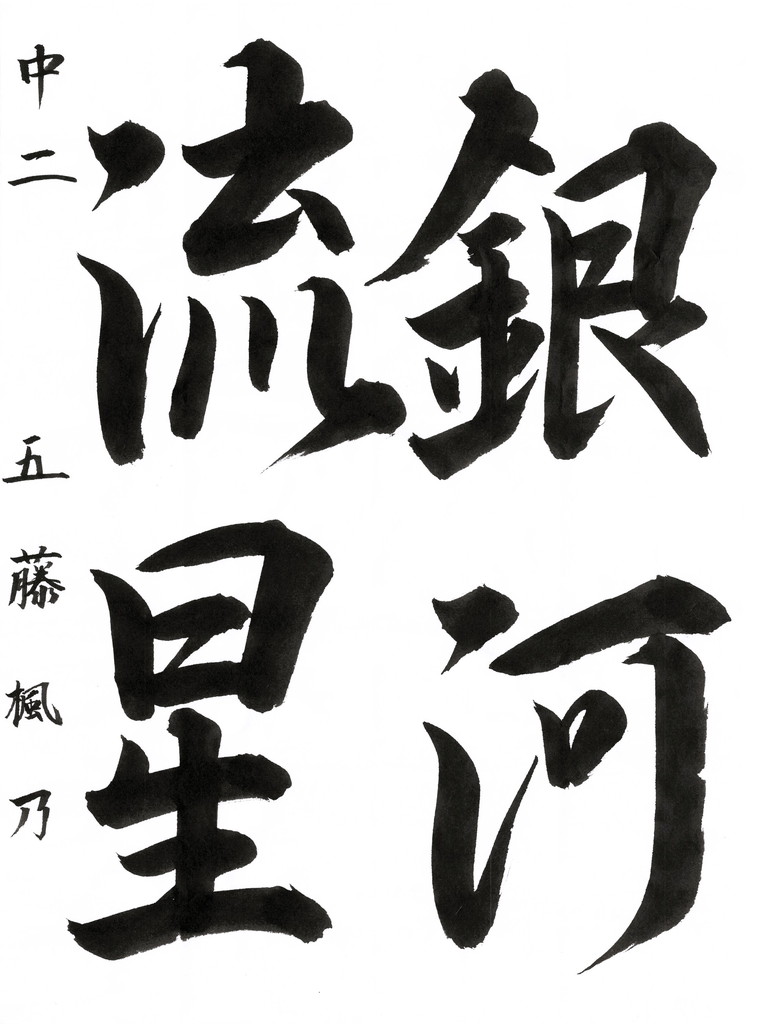 銀河
流星
中二 五藤楓乃